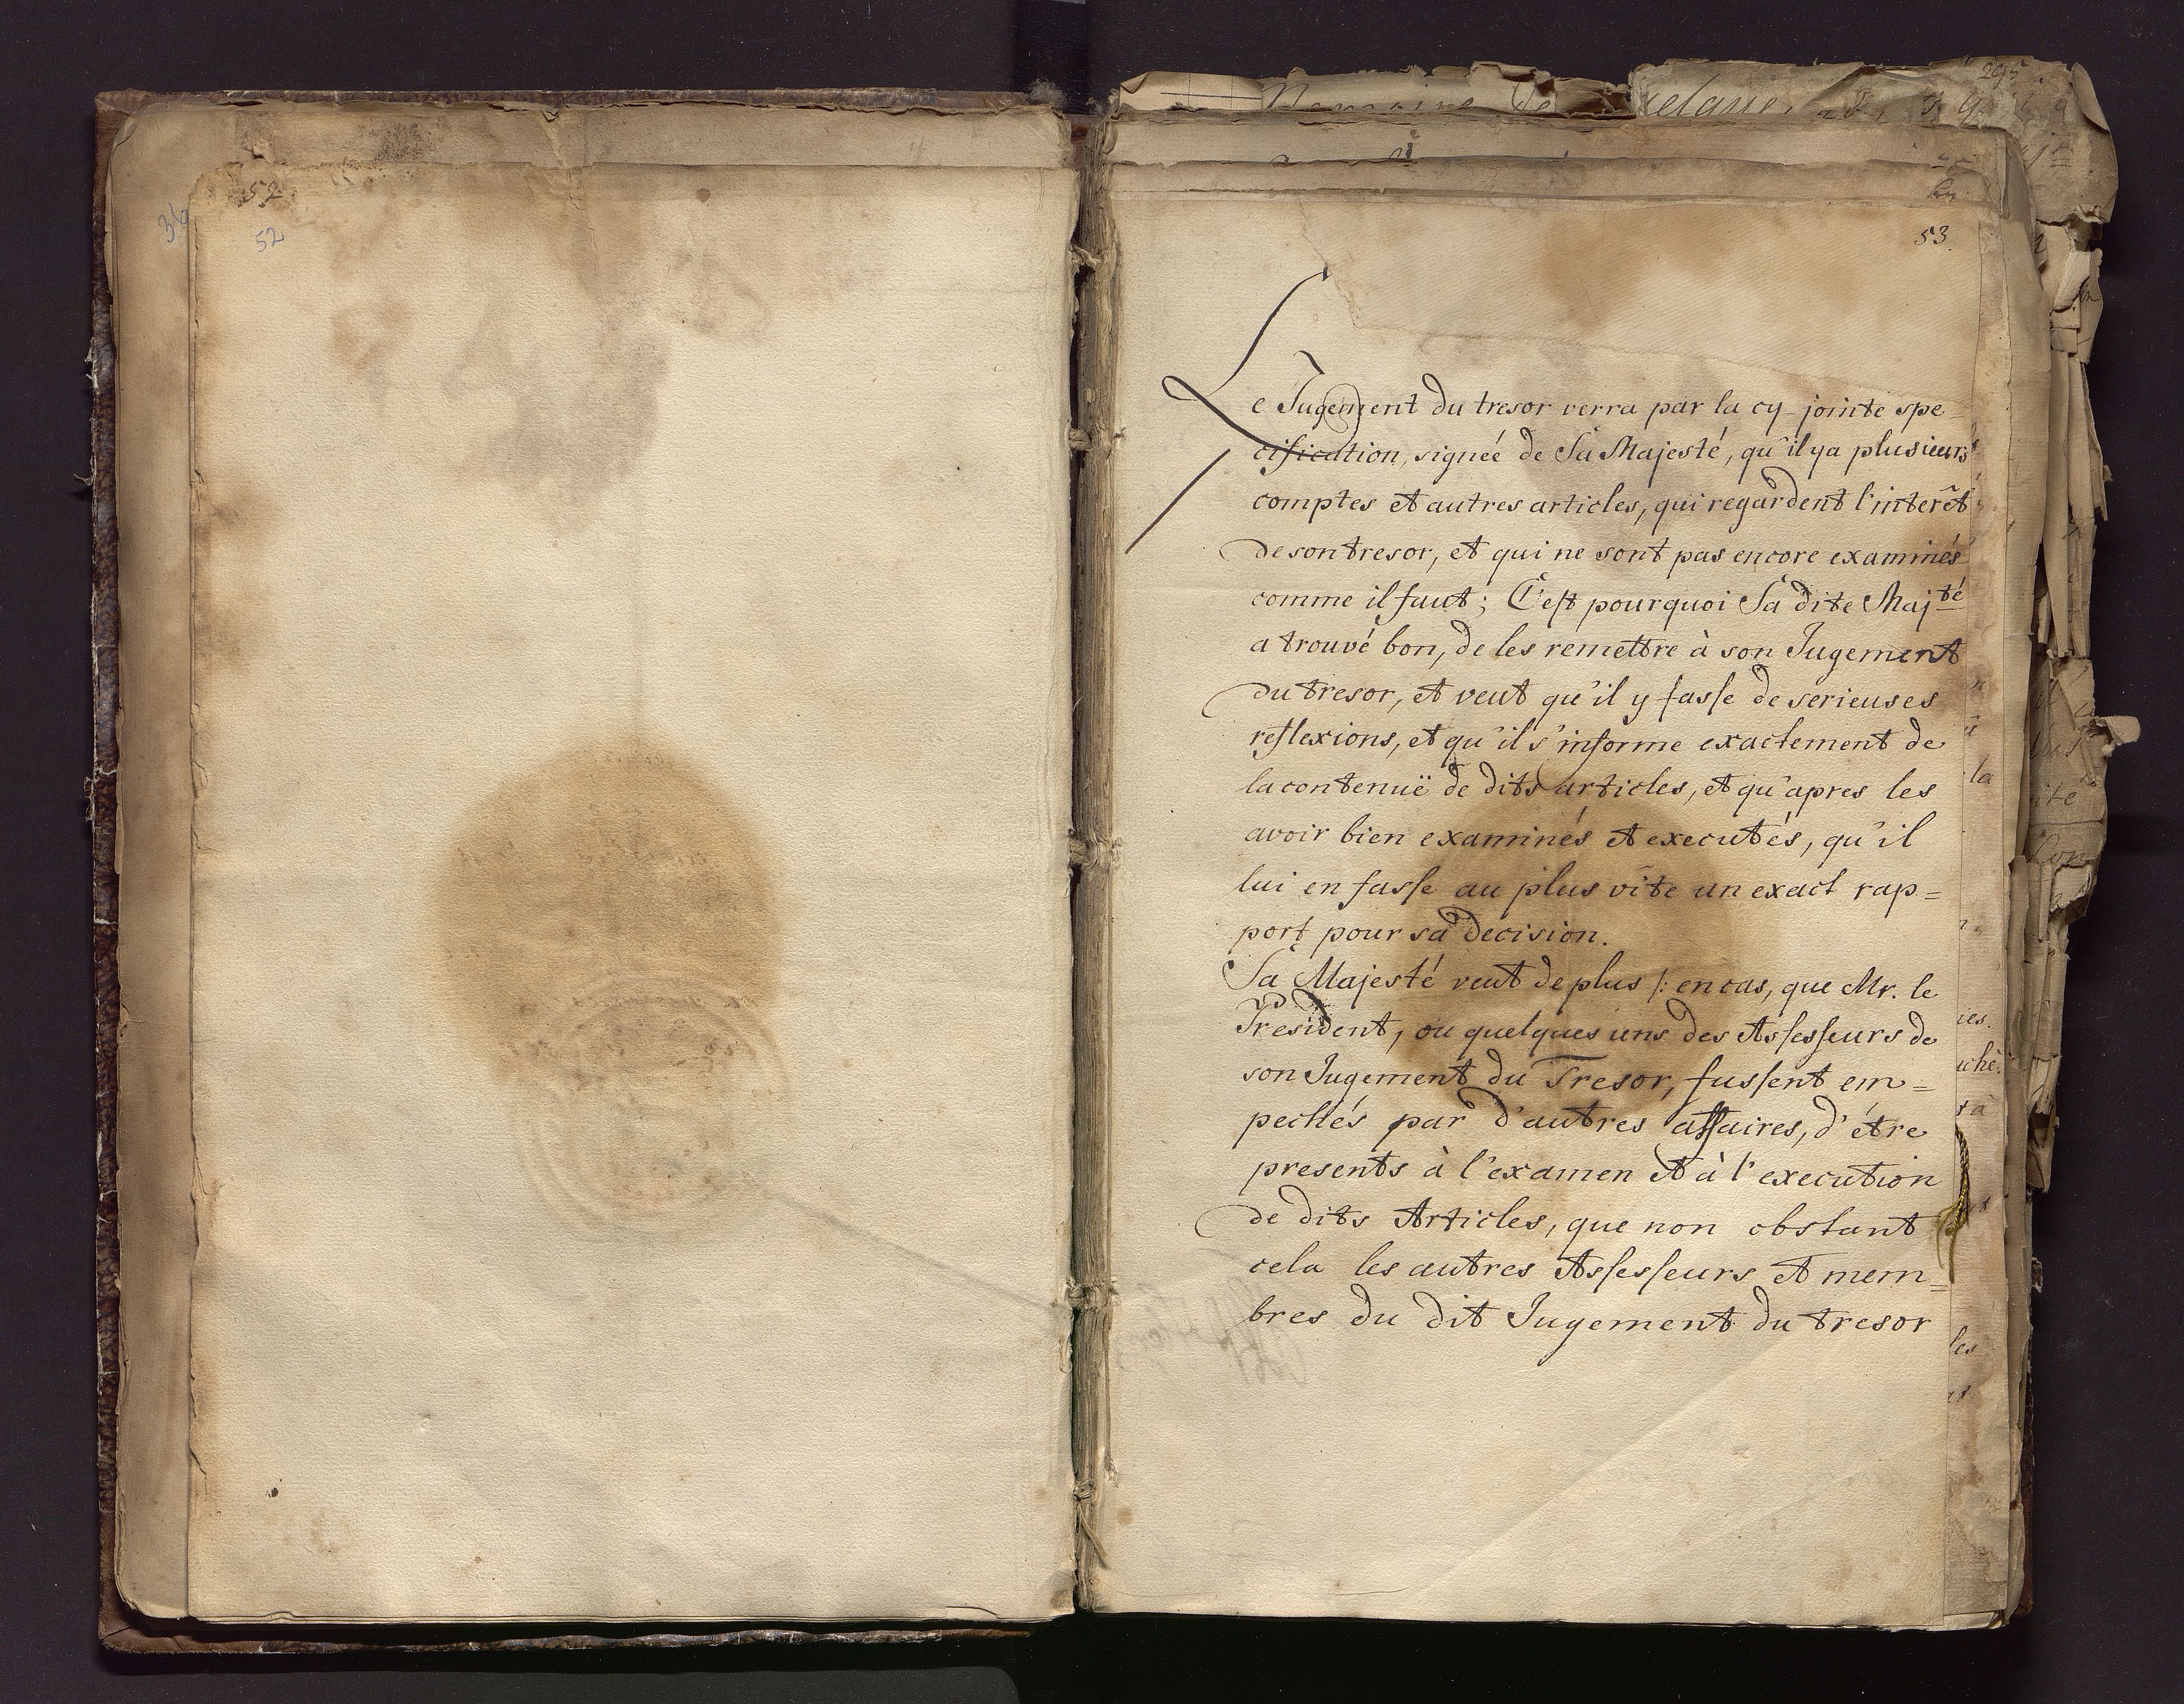 52
36
52
53.
Le Jugement du tresor verra par la cy-jointe spe-
cification, signée de Sa Majesté, qu'il y a plusieurs
comptes et autres articles, qui regardent l'interêt
de son tresor, et qui ne sont pas encore examinés
comme il faut; C'est pourquoi Sa dite Majté
a trouvé bon, de les remettre à son Jugement
du tresor, et veut qu'il y fasse de serieuses
reflexions, et qu'il s'informe exactement de
la contenuë de dits articles, et qu'apres les
avoir bien examinés et executés, qu'il
lui en fasse au plus vîte un exact rap=
port pour sa decision.
Sa Majesté veut de plus /: en cas, que Mr. le
President, ou quelques uns des Assesseurs de
son Jugement du Tresor, fussent em=
pechés par d'autres affaires, d'étre
presents à l'examen et à l'execution
de dits Articles, que non obstant
cela les autres Assesseurs et mem=
bres du dit Jugement du tresor